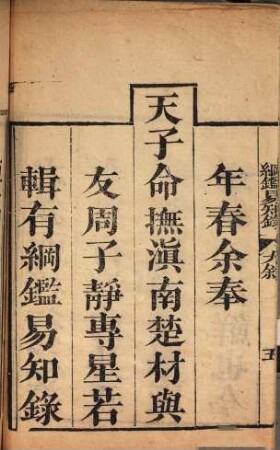 年春余奉
天子命撫滇南楚材與
友周子靜專星若
輯有綱鑑易知錄
綱鑑易知錄
五